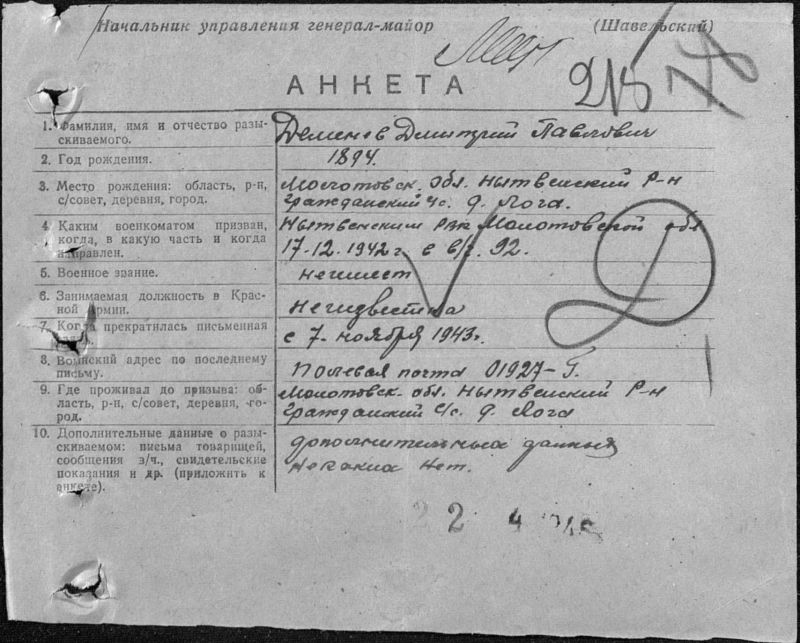 Начальник управления генерал-майор (Шавельский)
78
АНКЕТА
1. Фамилия, имя и отчество разы- Деменев Дмитрий Павлович
скиваемого.
2. Год рождения. 1894.
3. Место рождения: область, р-н, Молотовск. обл. Нытвенский Р-н
с/совет, деревня, город. Гражданский с/с. д. Лога.
4. Каким военкоматом призван, Нытвенским рвк Молотовской обл
когда, в какую часть и когда 17-12. 1942 г. с в/г. 92.
направлен.
5. Военное звание. неимеет
6. Занимаемая должность в Крас-
ной Армии. Неизвестна
7. Когда прекратилась письменная с 7. ноября 1943г.
связь.
8. Воинский адрес по последнему
письму. Полевая почта 01927-
9. Где проживал до призыва: об- Молотовск. обл. Нытвенский Р-н
ласть, р-н, с/совет, деревня, го- Гражданский с/с. д. Лога
род.
10. Дополнительные данные о разы- дополнительных данных
скиваемом: письма товарищей, никаких нет.
сообщения в/ч., свидетельские
показания и др. (приложить к
анкете).
22 4